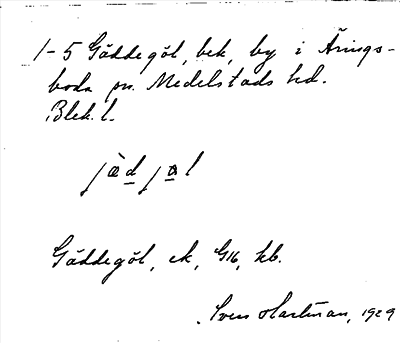 1-5 Gäddegöl, bek, by i Ärings-
boda sn. Medelstads hd.
Blek. l.
jæ̀d jøl
Gäddegöl, ek, G16, kb.
Sven Hartman, 1929